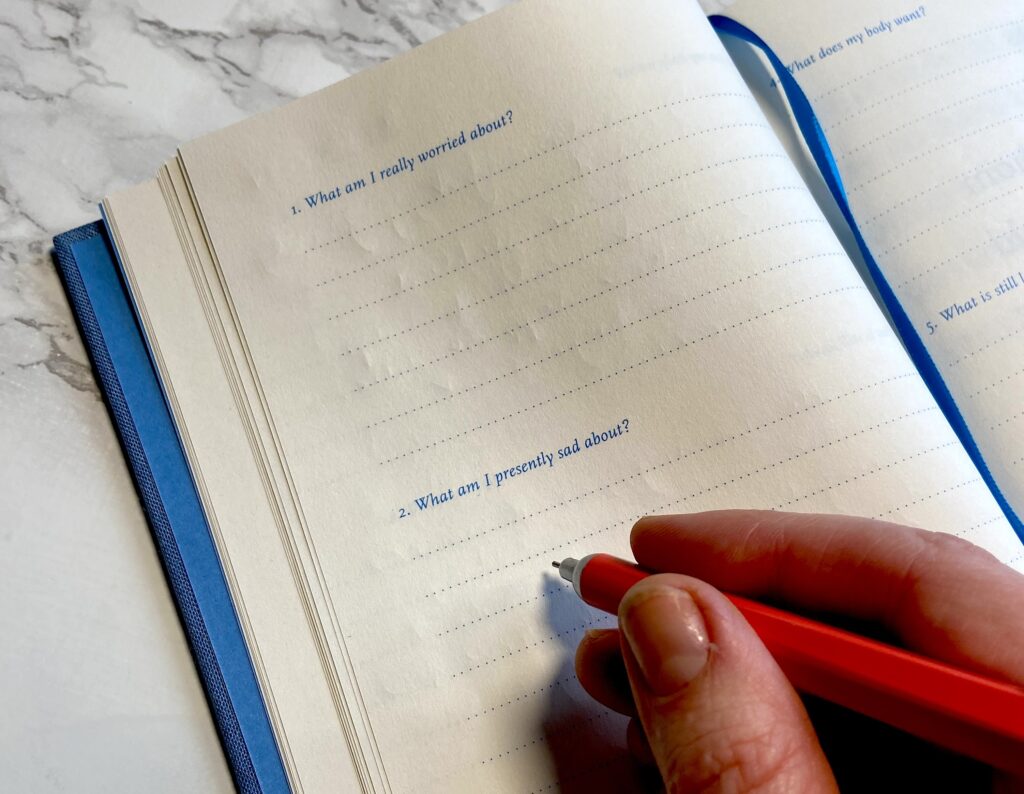 1. What am I really worried about?
2. What am I presently sad about?
4. What does my body want?
5. What is still